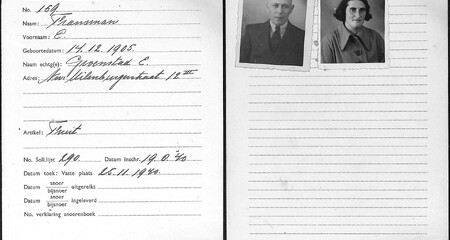 No. 169
Naam: Fransman
Voornaam: E.
Geboortedatum: 14.12.1905.
Naam echtg(e): E.
Adres: Nw. Uilenburgerstraat 12 III
Artikel: Fruit
No. Soll.lijst 290. Datum inschr. 19.
Datum toek: Vaste plaats 25.11.1940.
Datum snoer
bijsnoer uitgereikt
Datum snoer
bijsnoer ingeleverd
No. verklaring snoerenboek